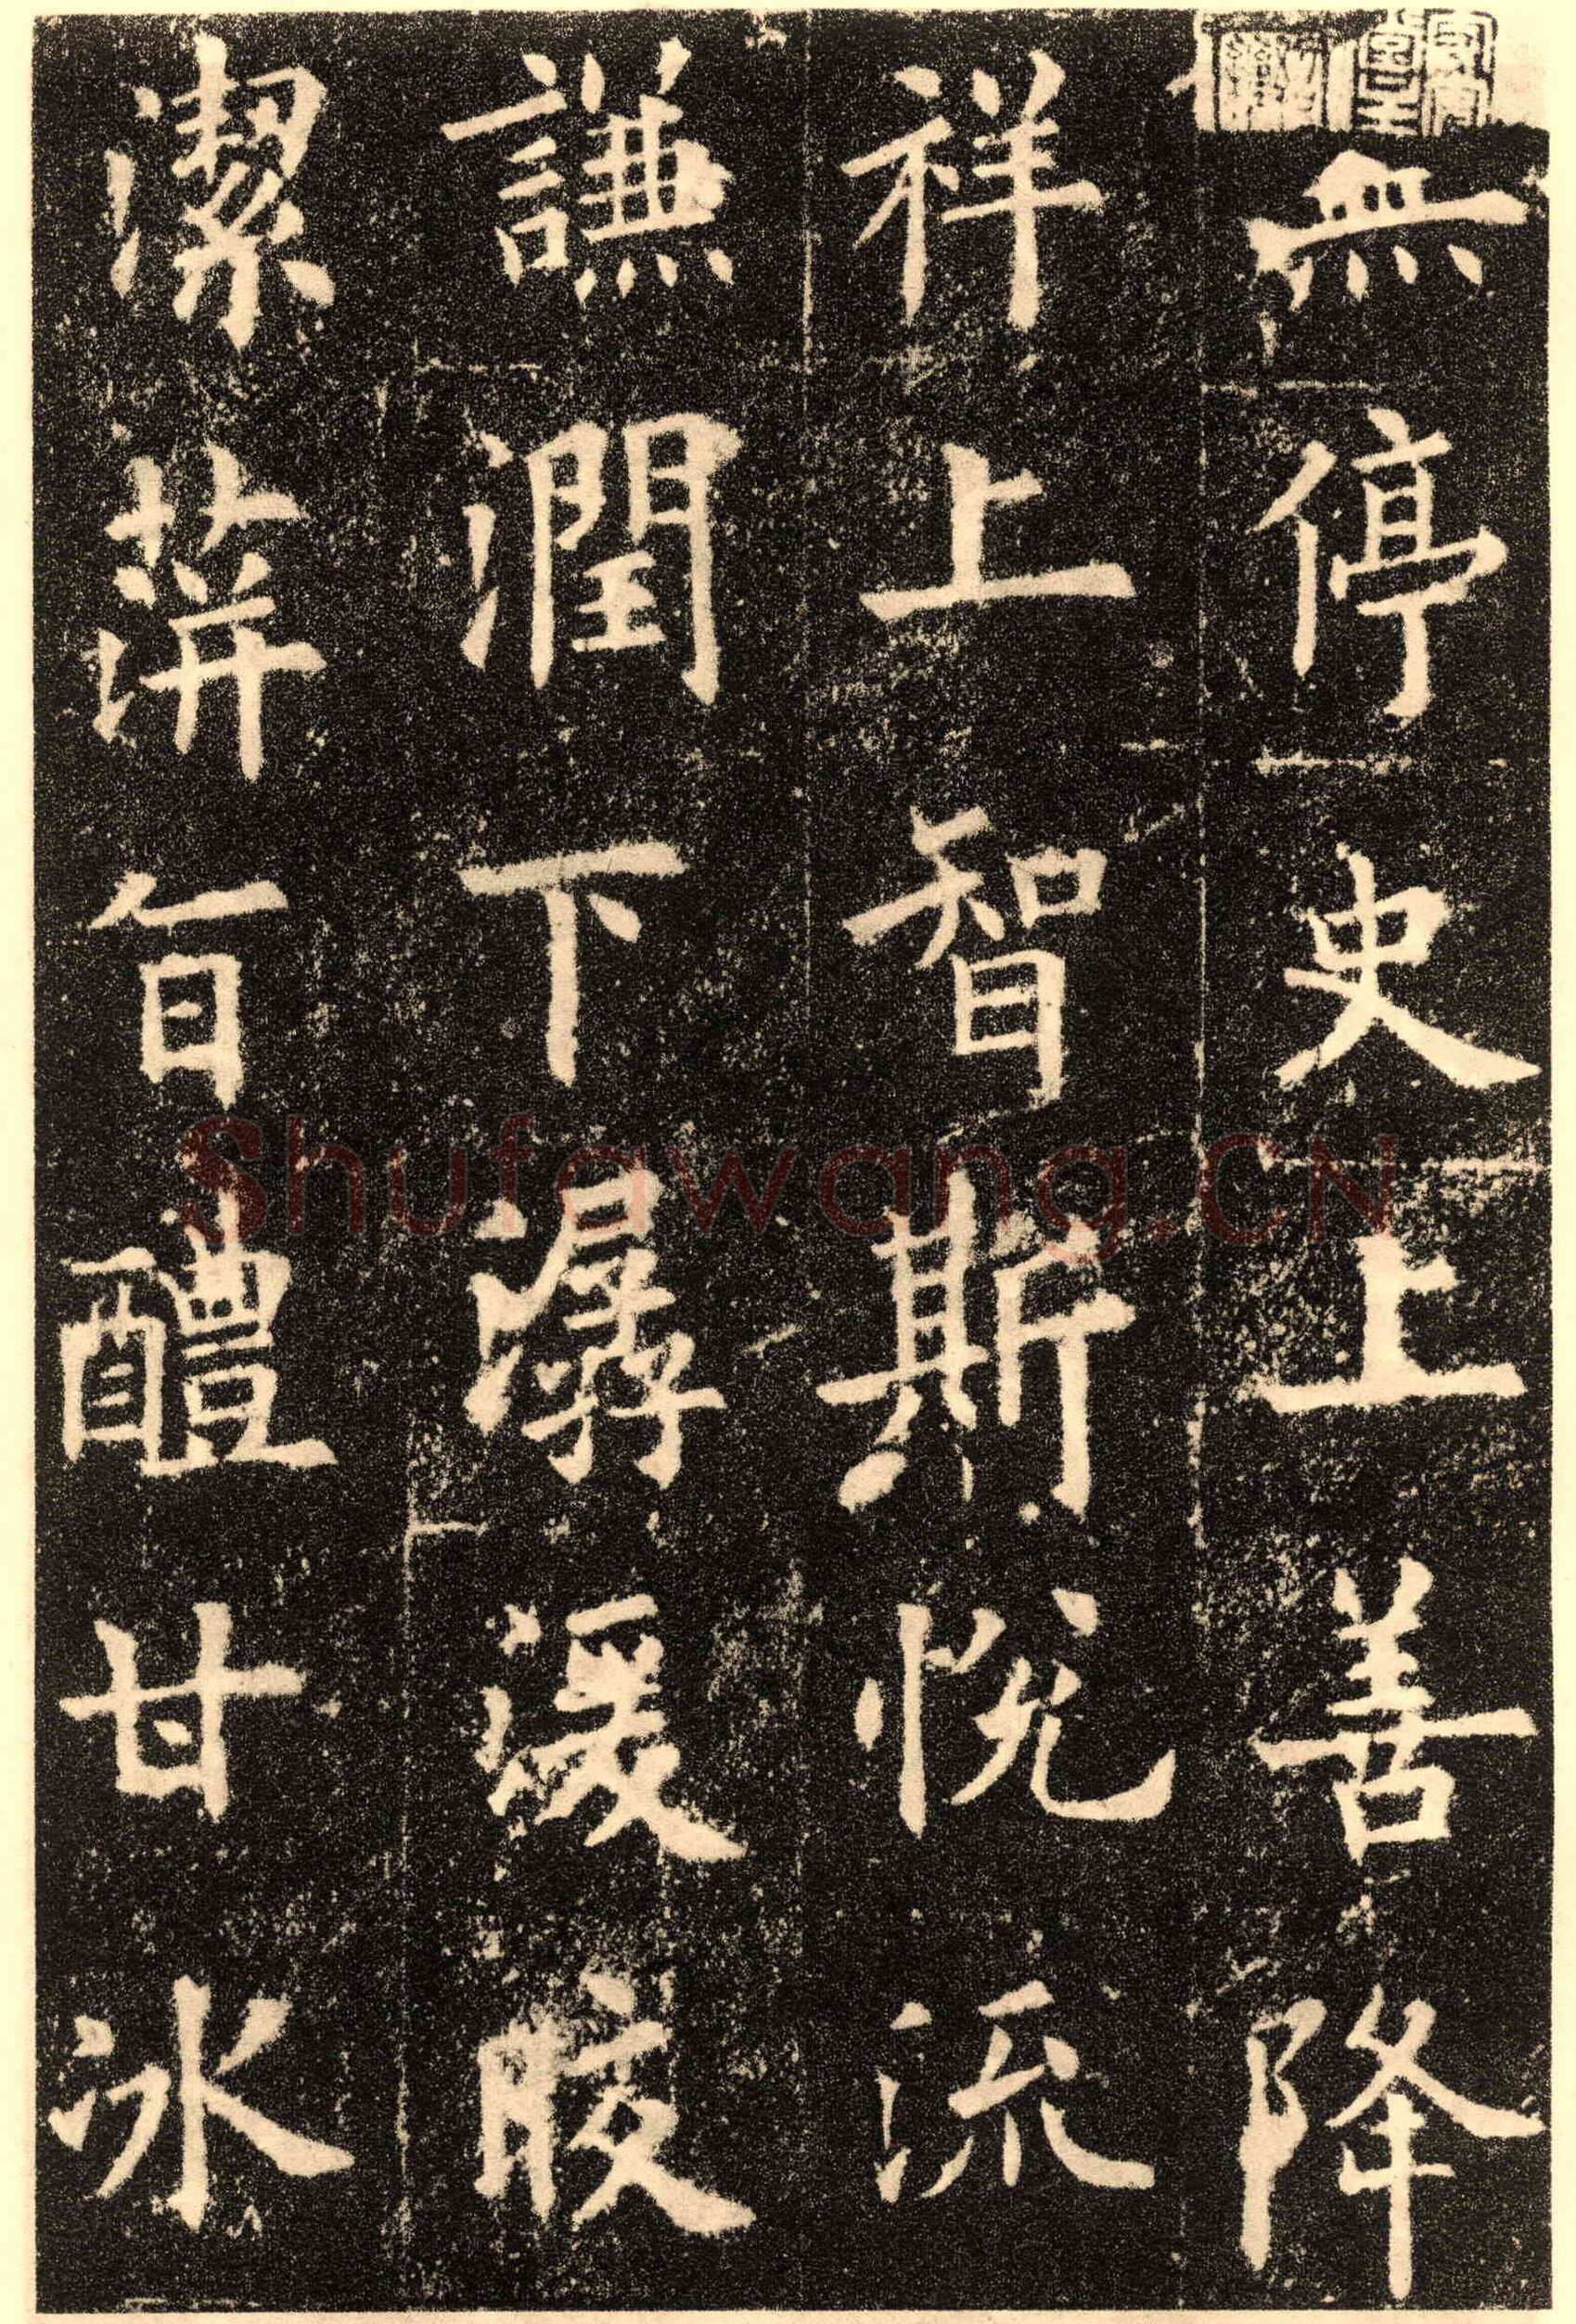 無停史上善降
祥上智斯悅流
謙潤下潺湲皎
潔蓱旨醴甘冰
Shufawang.CN